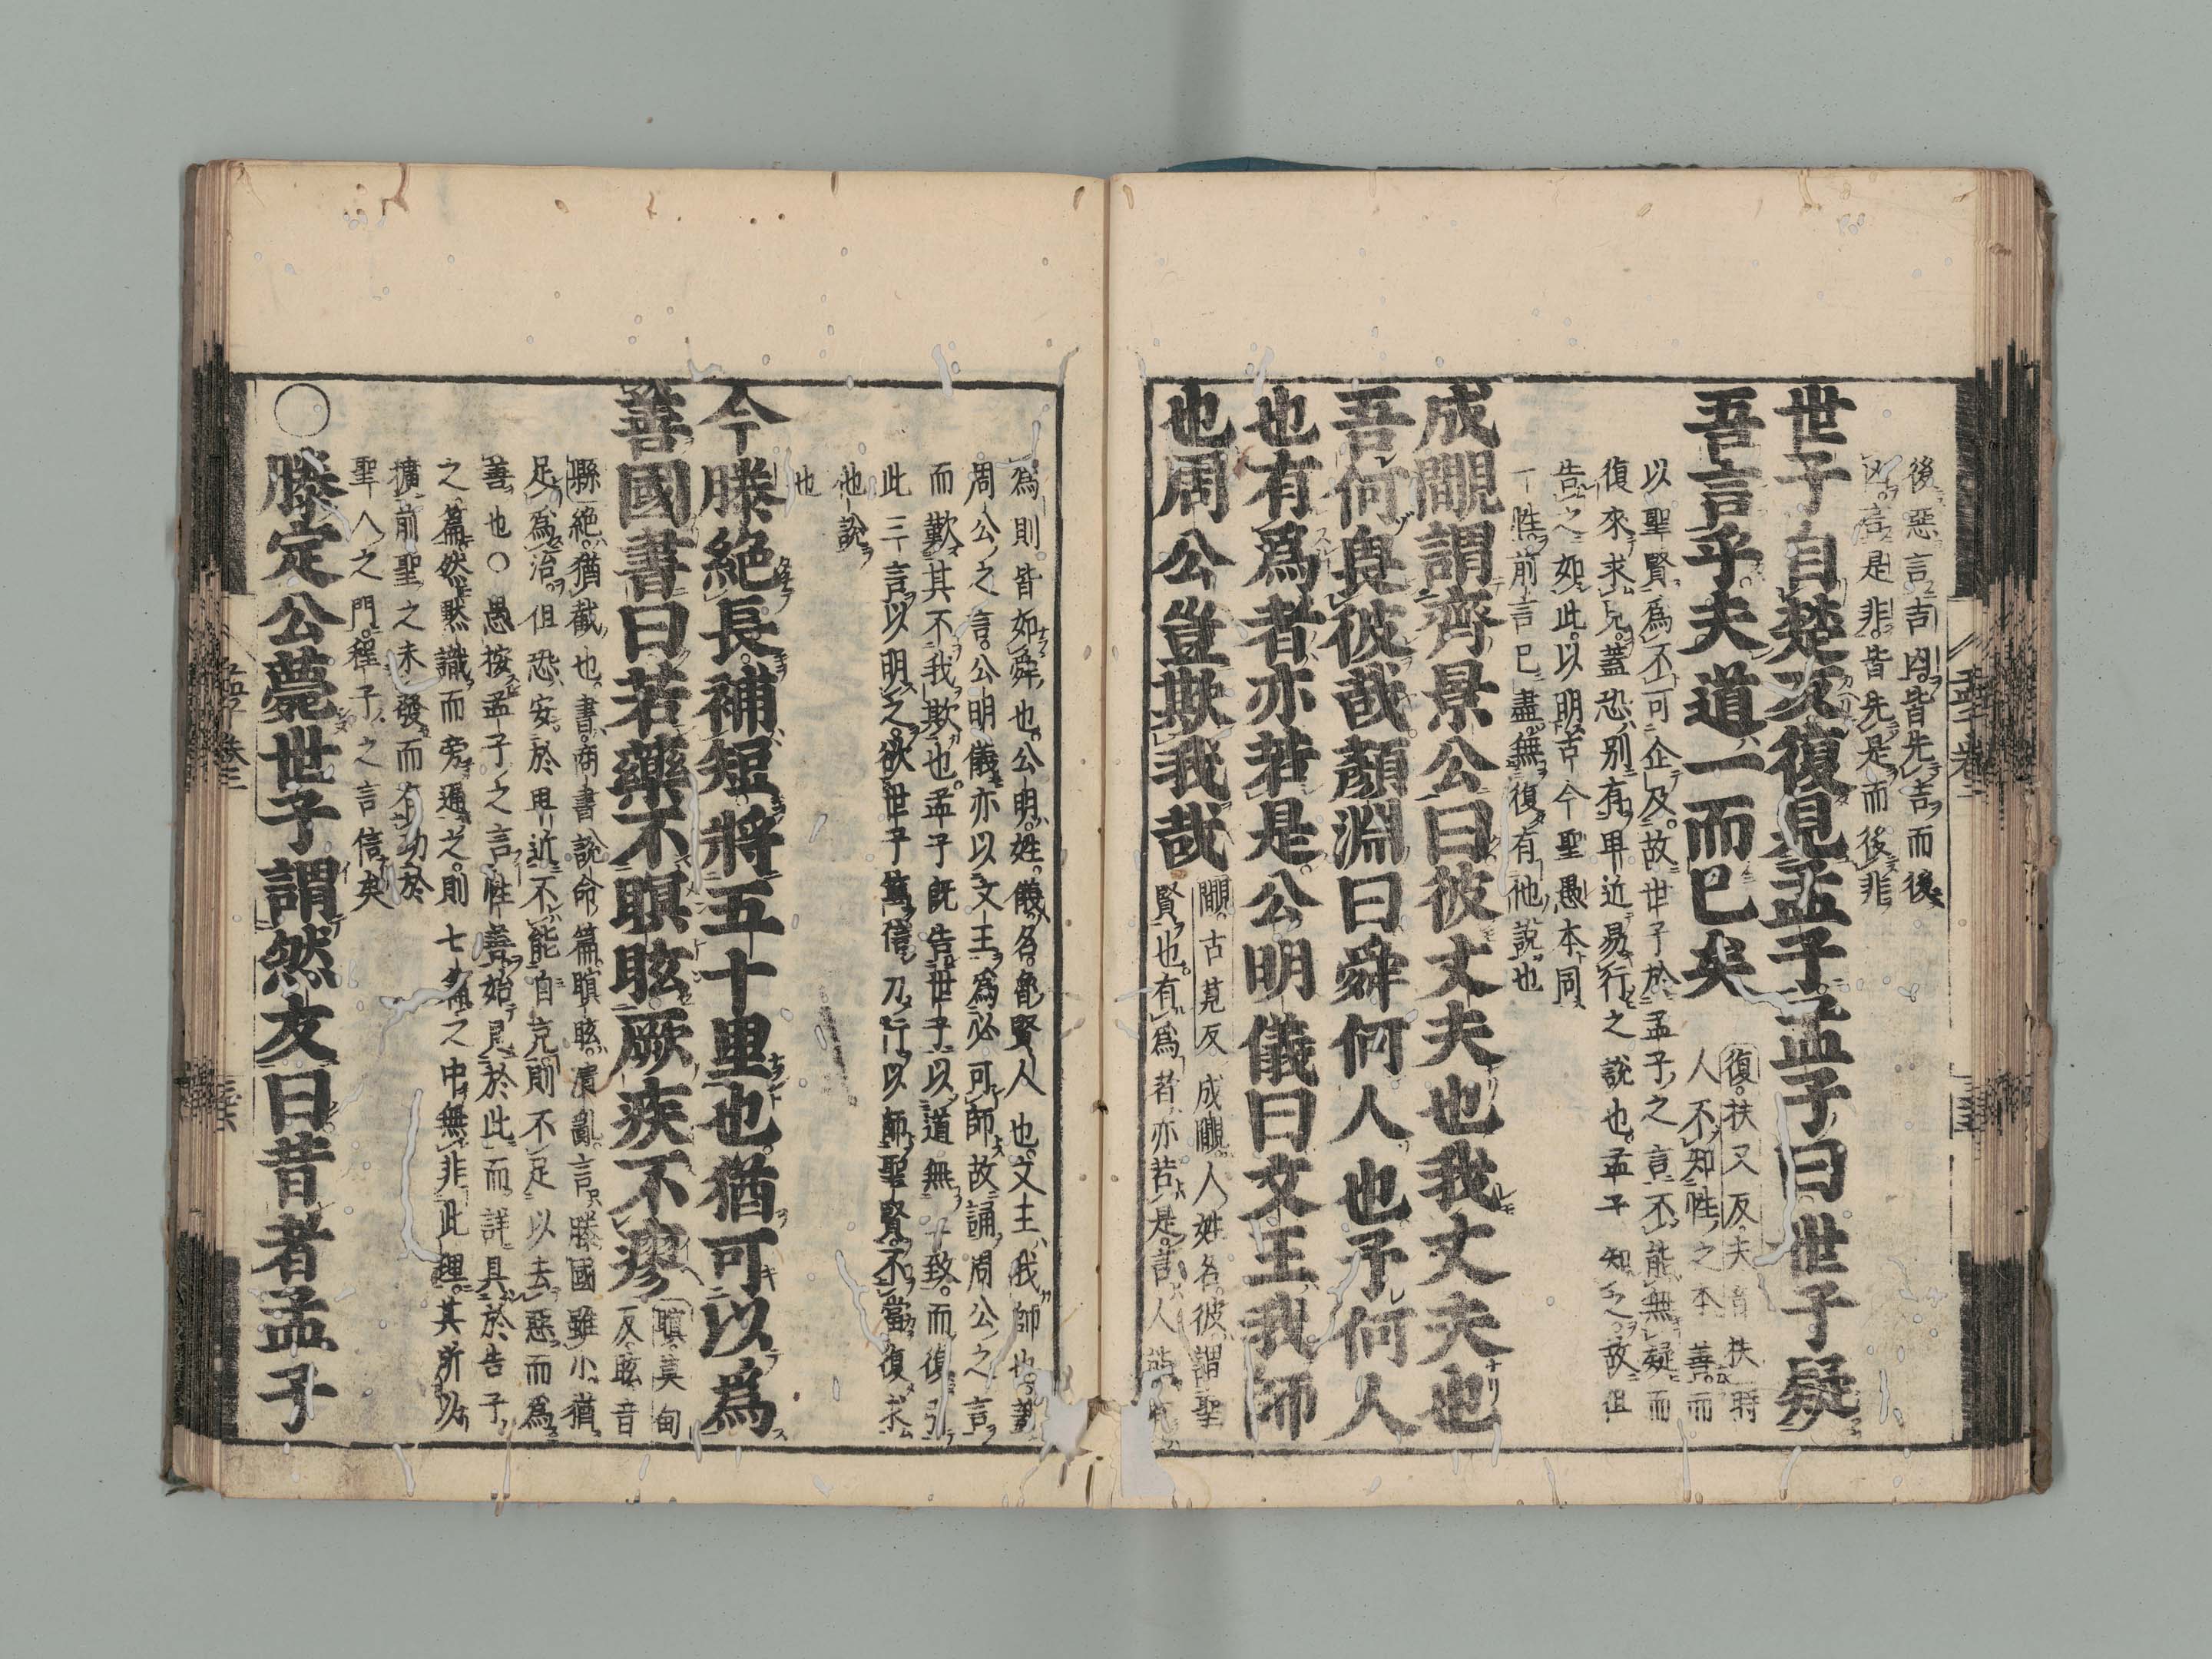 後惡言吉凶皆先吉而後
凶言是非皆先是而後非
世子自楚反復見孟子孟子曰世子疑
吾言乎夫道一而已矣
復扶又反夫音扶時
人不知性之本善而
以聖賢為不可企及故世子於孟子之言不能無疑而
復來求見蓋恐別有卑近易行之說也孟子知之故但
告之如此以明古今聖愚本同
一性前言已盡無復有他說也
成覸謂齊景公曰彼丈夫也我丈夫也
吾何畏彼哉顏淵曰舜何人也予何人
也有為者亦若是公明儀曰文王我師
也周公豈欺我哉
覸古莧反成覸人姓名彼謂聖
賢也有為者亦若是言人能
為則皆如舜也公明姓儀名魯賢人也文王我師也蓋
周公之言公明儀亦以文王為必可師故誦周公之言
而歎其不我欺也孟子既告世子以道無二致而復引
此三言以明之欲世子篤信力行以師聖賢不當復求
他說
也
今滕絕長補短將五十里也猶可以為
善國書曰若藥不瞑眩厥疾不瘳
瞑莫甸
反眩音
縣絕猶截也書商書說命篇瞑眩憒亂言滕國雖小猶
足為治但恐安於卑近不能自克則不足以去惡而為
善也○愚按孟子之言性善始見於此而詳具於告子
之篇然默識而旁通之則七篇之中無非此理其所以
擴前聖之未發而有功於
聖人之門程子之言信矣
○滕定公薨世子謂然友曰昔者孟子